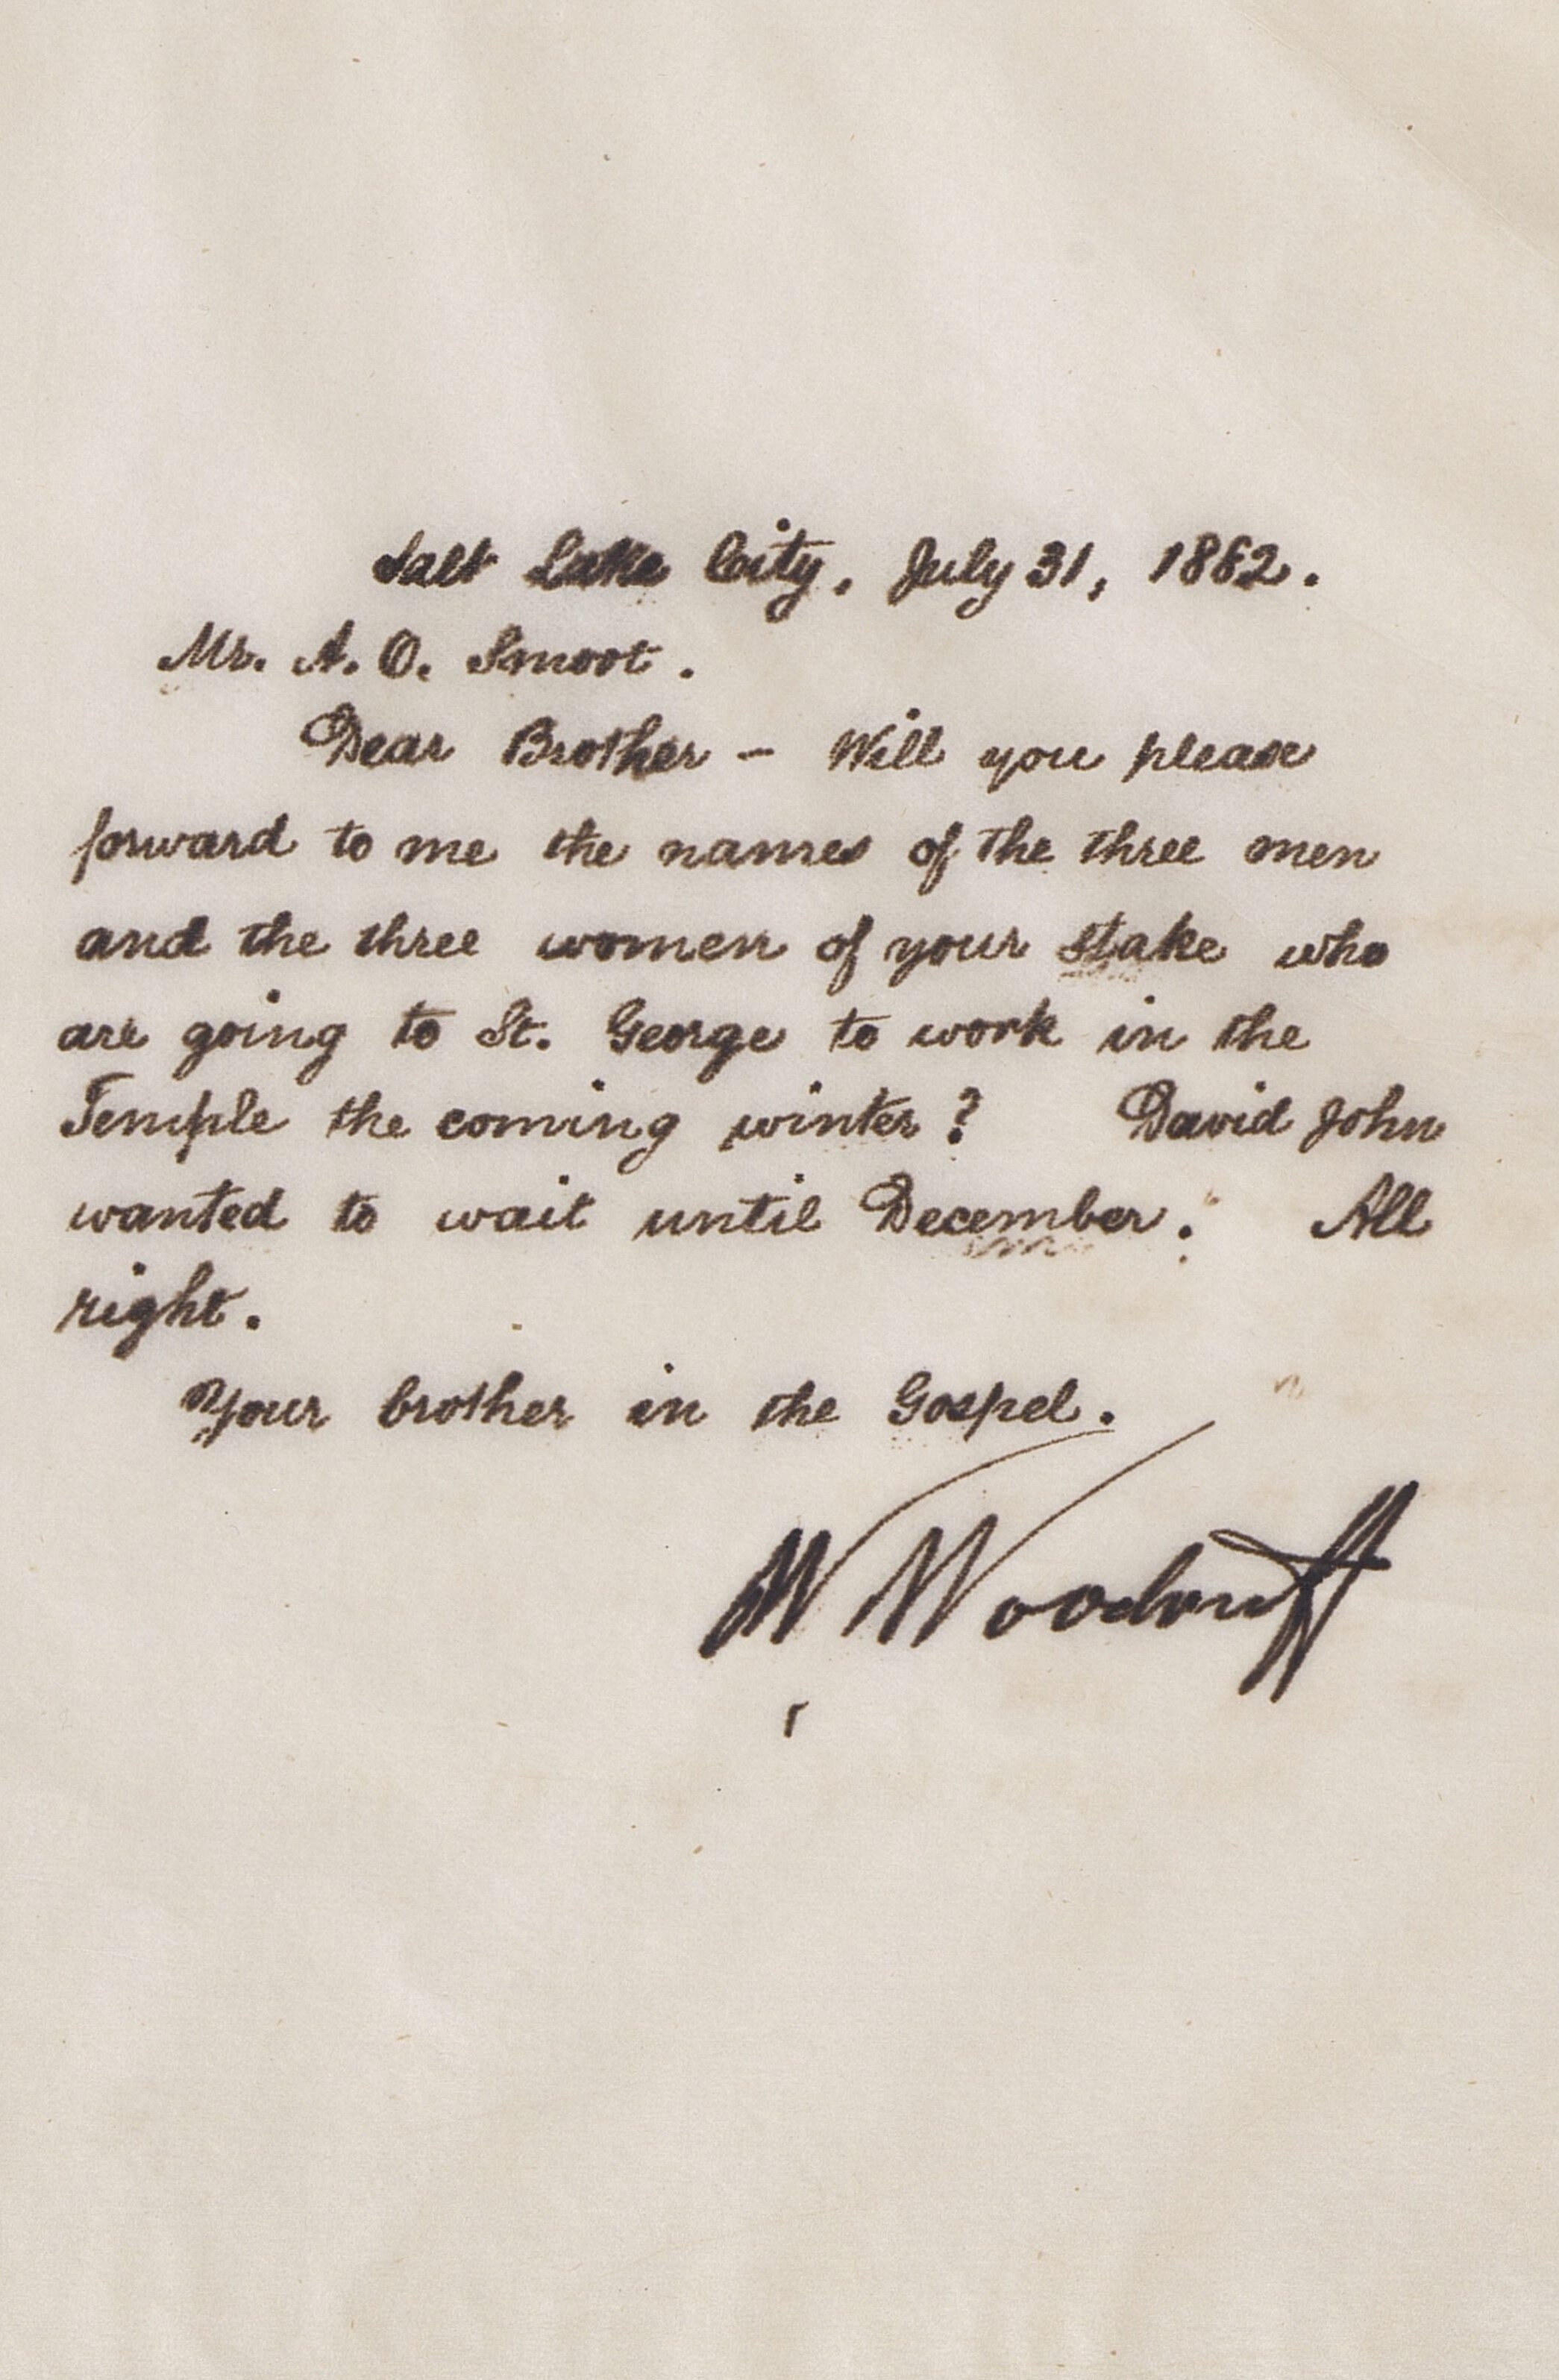 Salt Lake City, July 31, 1882.
Mr. A. O. Smoot.
Dear Brother – Will you please
forward to me the names of the three men
and the three women of your stake who
are going to St. George to work in the
Temple the coming winter? David John
wanted to wait until December. All
right.
Your brother in the Gospel.
W Woodruff